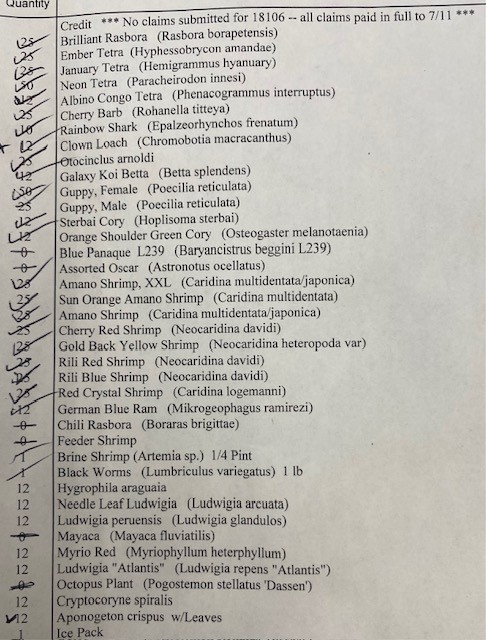 Quantity
Credit *** No claims submitted for 18106 -- all claims paid in full to 7/11 ***
25 Brilliant Rasbora (Rasbora borapetensis)
25 Ember Tetra (Hyphessobrycon amandae)
25 January Tetra (Hemigrammus hyanuary)
50 Neon Tetra (Paracheirodon innesi)
12 Albino Congo Tetra (Phenacogrammus interruptus)
25 Cherry Barb (Rohanella titteya)
10 Rainbow Shark (Epalzeorhynchos frenatum)
12 Clown Loach (Chromobotia macracanthus)
25 Otocinclus arnoldi
12 Galaxy Koi Betta (Betta splendens)
50 Guppy, Female (Poecilia reticulata)
25 Guppy, Male (Poecilia reticulata)
12 Sterbai Cory (Hoplisoma sterbai)
12 Orange Shoulder Green Cory (Osteogaster melanotaenia)
0 Blue Panaque L239 (Baryancistrus beggini L239)
0 Assorted Oscar (Astronotus ocellatus)
25 Amano Shrimp, XXL (Caridina multidentata/japonica)
25 Sun Orange Amano Shrimp (Caridina multidentata)
25 Amano Shrimp (Caridina multidentata/japonica)
25 Cherry Red Shrimp (Neocaridina davidi)
25 Gold Back Yellow Shrimp (Neocaridina heteropoda var)
25 Rili Red Shrimp (Neocaridina davidi)
25 Rili Blue Shrimp (Neocaridina davidi)
25 Red Crystal Shrimp (Caridina logemanni)
12 German Blue Ram (Mikrogeophagus ramirezi)
0 Chili Rasbora (Boraras brigittae)
0 Feeder Shrimp
1 Brine Shrimp (Artemia sp.) 1/4 Pint
1 Black Worms (Lumbriculus variegatus) 1 lb
12 Hygrophila araguaia
12 Needle Leaf Ludwigia (Ludwigia arcuata)
12 Ludwigia peruensis (Ludwigia glandulos)
0 Mayaca (Mayaca fluviatilis)
12 Myrio Red (Myriophyllum heterphyllum)
12 Ludwigia "Atlantis" (Ludwigia repens "Atlantis")
0 Octopus Plant (Pogostemon stellatus 'Dassen')
12 Cryptocoryne spiralis
12 Aponogeton crispus w/Leaves
1 Ice Pack